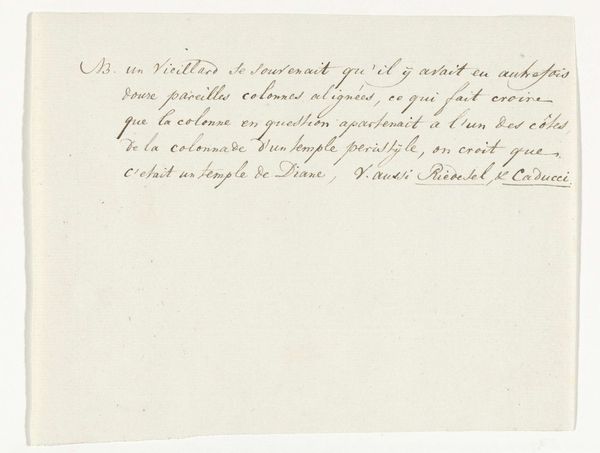 NB. un vieillard se souvenait qu'il ÿ avait eu autrefois
douze pareilles colonnes alignées, ce qui fait croire
que la colonne en question apartenait a l'un des côtes
de la colonnade d'un temple peristÿle, on croit que
c'etait un temple de Diane, V. aussi Riedesel, & Caducci.